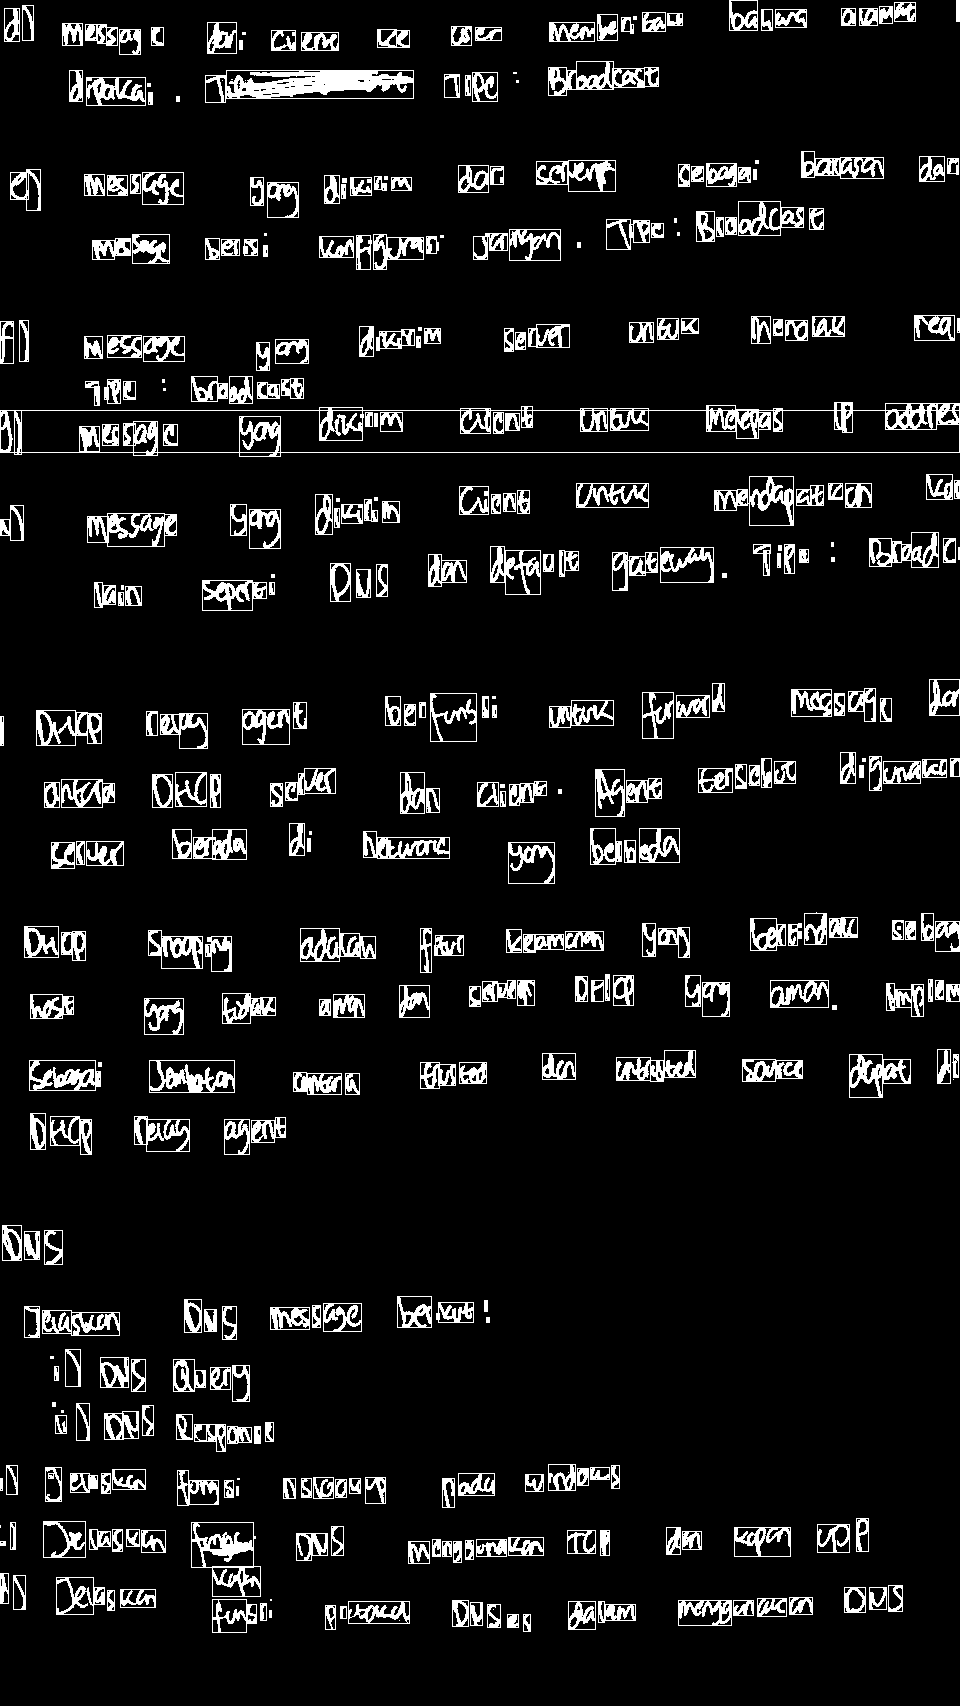 d) message dari client ke user memberitau bahwa alamat
dipakai . Tipe : Broadcast
e) message yang dikirim dari server sebagai balasan dari
message berisi konfigurasi jaringan . Tipe : Broadcast
f) message yang dikirim server untuk menolak
Tipe : broadcast
g) message yang dikirim client untuk melepas IP address
message yang dikirim client untuk mendapatkan
lain seperti DNS dan default gateway. Tipe :
DHCP relay agent berfungsi untuk forward message dari
antara DHCP server dan client. Agent tersebut digunakan
server berada di network yang berbeda
DHCP Snooping adalah fitur keamanan yang bertindak
host yang tidak aman dan server DHCP yang aman.
Sebagai Jembatan antara trusted dan untrusted source dapat
DHCP relay agent
DNS
Jelaskan DNS message berikut !
i) DNS Query
ii) DNS Response
) Jelaskan fungsi nslookup pada windows
) Jelaskan DNS menggunakan TCP dan kapan UDP
kapan
) Jelaskan fungsi protokol dalam menggunakan DNS